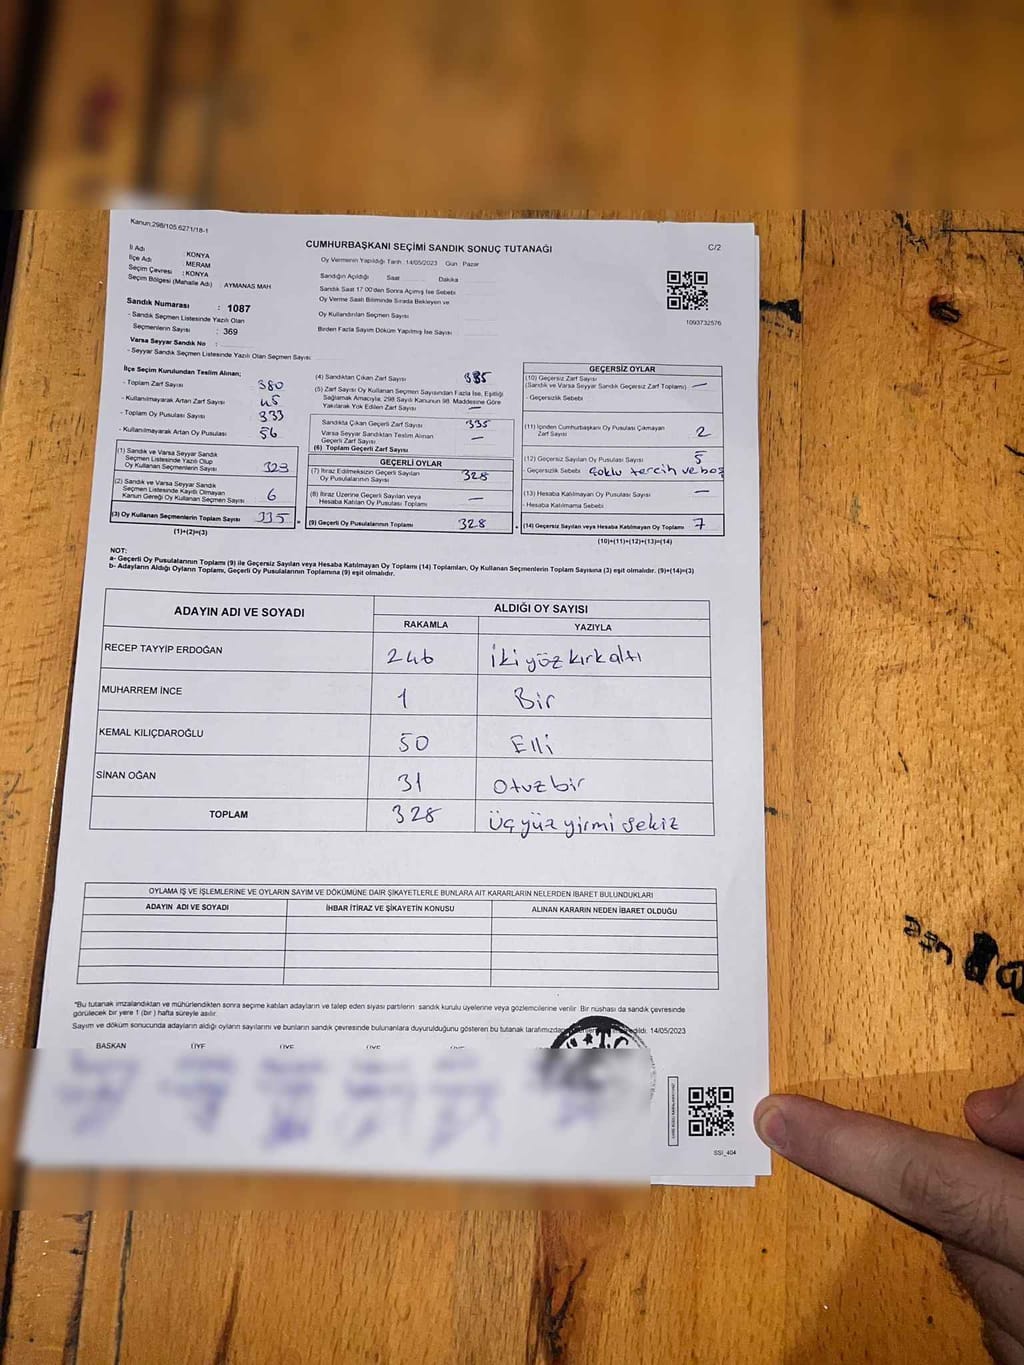 Kanun:298/105.6271/18-1
CUMHURBAŞKANI SEÇİMİ SANDIK SONUÇ TUTANAĞI
C/2
İl Adı KONYA
İlçe Adı : MERAM
Seçim Çevresi : KONYA
Seçim Bölgesi (Mahalle Adı) : AYMANAS MAH
Oy Vermenin Yapıldığı Tarih : 14/05/2023 Gün : Pazar
Sandığın Açıldığı Saat Dakika
Sandık Saat 17:00'den Sonra Açımış İse Sebebi
Oy Verme Saati Bitiminde Sırada Bekleyen ve
Oy Kullandırılan Seçmen Sayısı
Birden Fazla Sayım Döküm Yapılmış İse Sayısı
1093732576
Sandık Numarası : 1087
- Sandık Seçmen Listesinde Yazılı Olan
Seçmenlerin Sayısı : 369
Varsa Seyyar Sandık No :
- Seyyar Sandık Seçmen Listesinde Yazılı Olan Seçmen Sayısı:
İlçe Seçim Kurulundan Teslim Alınan;
- Toplam Zarf Sayısı 380
- Kullanılmayarak Artan Zarf Sayısı 45
- Toplam Oy Pusulası Sayısı 333
- Kullanılmayarak Artan Oy Pusulası 56
(1) Sandık ve Varsa Seyyar Sandık
Seçmen Listesinde Yazılı Olup
Oy Kullanan Seçmenlerin Sayısı 329
(2) Sandık ve Varsa Seyyar Sandık
Seçmen Listesinde Kayıtlı Olmayan
Kanun Gereği Oy Kullanan Seçmen Sayısı 6
(3) Oy Kullanan Seçmenlerin Toplam Sayısı 335
(1)+(2)=(3)
(4) Sandıktan Çıkan Zarf Sayısı 335
(5) Zarf Sayısı Oy Kullanan Seçmen Sayısından Fazla İse, Eşitliği
Sağlamak Amacıyla, 298 Sayılı Kanunun 98. Maddesine Göre
Yakılarak Yok Edilen Zarf Sayısı —
Sandıkta Çıkan Geçerli Zarf Sayısı 335
Varsa Seyyar Sandıktan Teslim Alınan
Geçerli Zarf Sayısı —
(6) Toplam Geçerli Zarf Sayısı
GEÇERLİ OYLAR
(7) İtiraz Edilmeksizin Geçerli Sayılan
Oy Pusulasının Sayısı 328
(8) İtiraz Üzerine Geçerli Sayılan veya
Hesaba Katılan Oy Pusulası Toplamı —
(9) Geçerli Oy Pusulalarının Toplamı 328
GEÇERSİZ OYLAR
(10) Geçersiz Zarf Sayısı
(Sandık ve Varsa Seyyar Sandık Geçersiz Zarf Toplamı) —
- Geçersizlik Sebebi
(11) İçinden Cumhurbaşkanı Oy Pusulası Çıkmayan
Zarf Sayısı 2
(12) Geçersiz Sayılan Oy Pusulası Sayısı 5
- Geçersizlik Sebebi Çoklu tercih ve boş
(13) Hesaba Katılmayan Oy Pusulası Sayısı —
- Hesaba Katılmama Sebebi
(14) Geçersiz Sayılan veya Hesaba Katılmayan Oy Toplamı 7
(10)+(11)+(12)+(13)=(14)
NOT:
a- Geçerli Oy Pusulalarının Toplamı (9) ile Geçersiz Sayılan veya Hesaba Katılmayan Oy Toplamı (14) Toplamları, Oy Kullanan Seçmenlerin Toplam Sayısına (3) eşit olmalıdır. (9)+(14)=(3)
b- Adayların Aldığı Oyların Toplamı, Geçerli Oy Pusulalarının Toplamına (9) eşit olmalıdır.
ADAYIN ADI VE SOYADI ALDIĞI OY SAYISI
RAKAMLA YAZIYLA
RECEP TAYYİP ERDOĞAN 246 İki yüz kırk altı
MUHARREM İNCE 1 Bir
KEMAL KILIÇDAROĞLU 50 Elli
SİNAN OĞAN 31 Otuz bir
TOPLAM 328 Üç yüz yirmi sekiz
OYLAMA İŞ VE İŞLEMLERİNE VE OYLARIN SAYIM VE DÖKÜMÜNE DAİR ŞİKAYETLERLE BUNLARA AİT KARARLARIN NELERDEN İBARET BULUNDUKLARI
ADAYIN ADI VE SOYADI İHBAR İTİRAZ VE ŞİKAYETİN KONUSU ALINAN KARARIN NEDEN İBARET OLDUĞU
*Bu tutanak imzalandıktan ve mühürlendikten sonra seçime katılan adayların ve talep eden siyasi partilerin sandık kurulu üyelerine veya gözlemcilerine verilir. Bir nüshası da sandık çevresinde
görülecek bir yere 1 (bir ) hafta süreyle asılır.
Sayım ve döküm sonucunda adayların aldığı oyların sayılarını ve bunların sandık çevresinde bulunanlara duyurulduğunu gösteren bu tutanak tarafımızdan edildi. 14/05/2023
BAŞKAN ÜYE ÜYE ÜYE ÜYE
SSİ_404